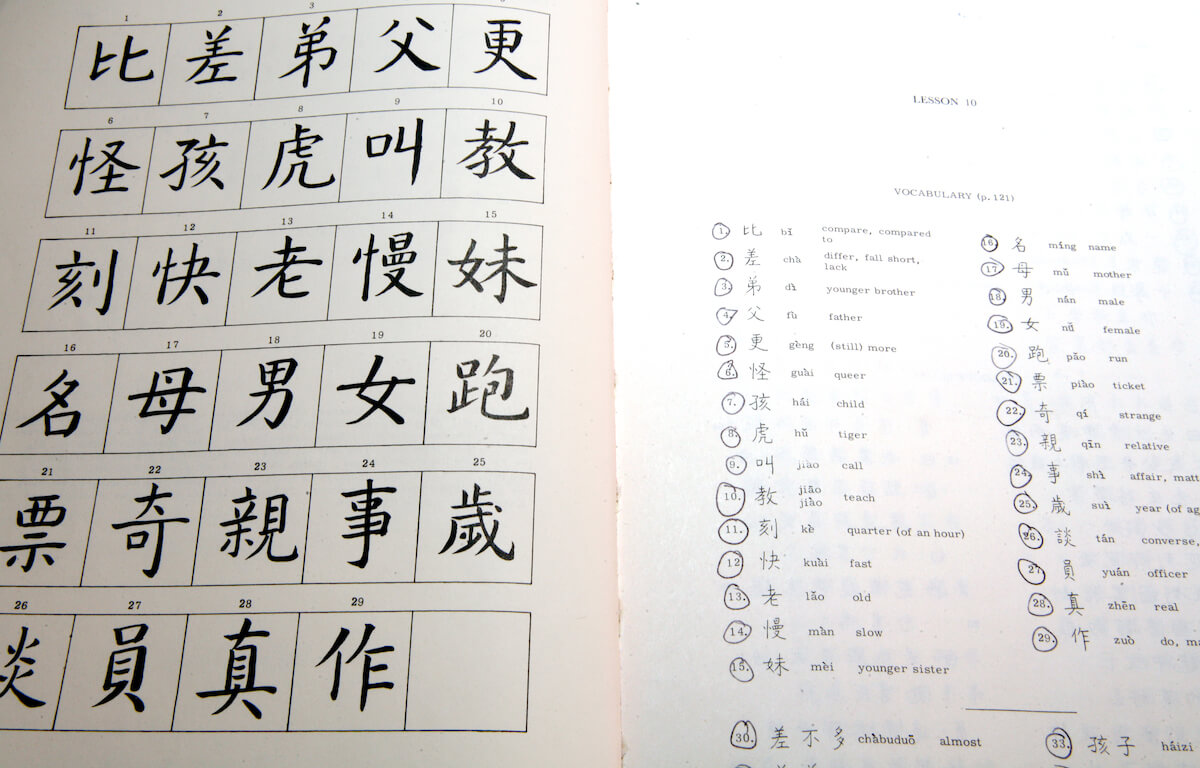 1 2 3
比 差 弟 父 更
6 7 8 9 10
怪 孩 虎 叫 教
11 12 13 14 15
刻 快 老 慢 妹
16 17 18 19 20
名 母 男 女 跑
21 22 23 24 25
票 奇 親 事 歲
26 27 28 29
談 員 真 作
LESSON 10
VOCABULARY (p. 121)
1. 比 bǐ compare, compared
to
2. 差 chà differ, fall short,
lack
3. 弟 dì younger brother
4. 父 fù father
5. 更 gèng (still) more
6. 怪 guài queer
7. 孩 hái child
8. 虎 hǔ tiger
9. 叫 jiào call
10. 教 jiāo
jiào teach
11. 刻 kè quarter (of an hour)
12 快 kuài fast
13. 老 lǎo old
14. 慢 màn slow
15. 妹 mèi younger sister
16. 名 míng name
17 母 mǔ mother
18. 男 nán male
19. 女 nǚ female
20. 跑 pǎo run
21. 票 piào ticket
22. 奇 qí strange
23. 親 qīn relative
24. 事 shì affair, matt
25. 歲 suì year (of ag
26. 談 tán converse,
27. 員 yuán officer
28. 真 zhēn real
29. 作 zuò do, ma
30. 差不多 chàbuduō almost
33. 孩子 háizi